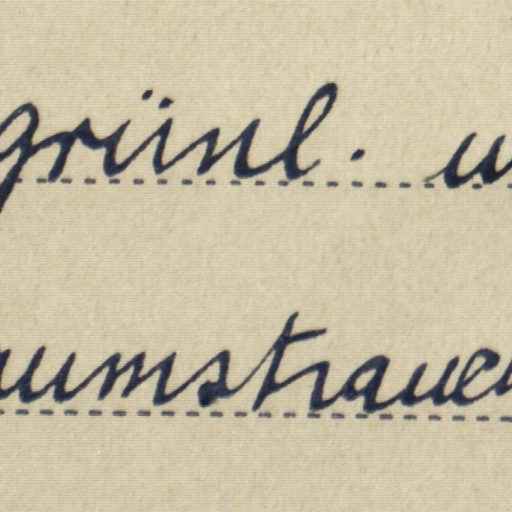 grünl. u
aumstrauc